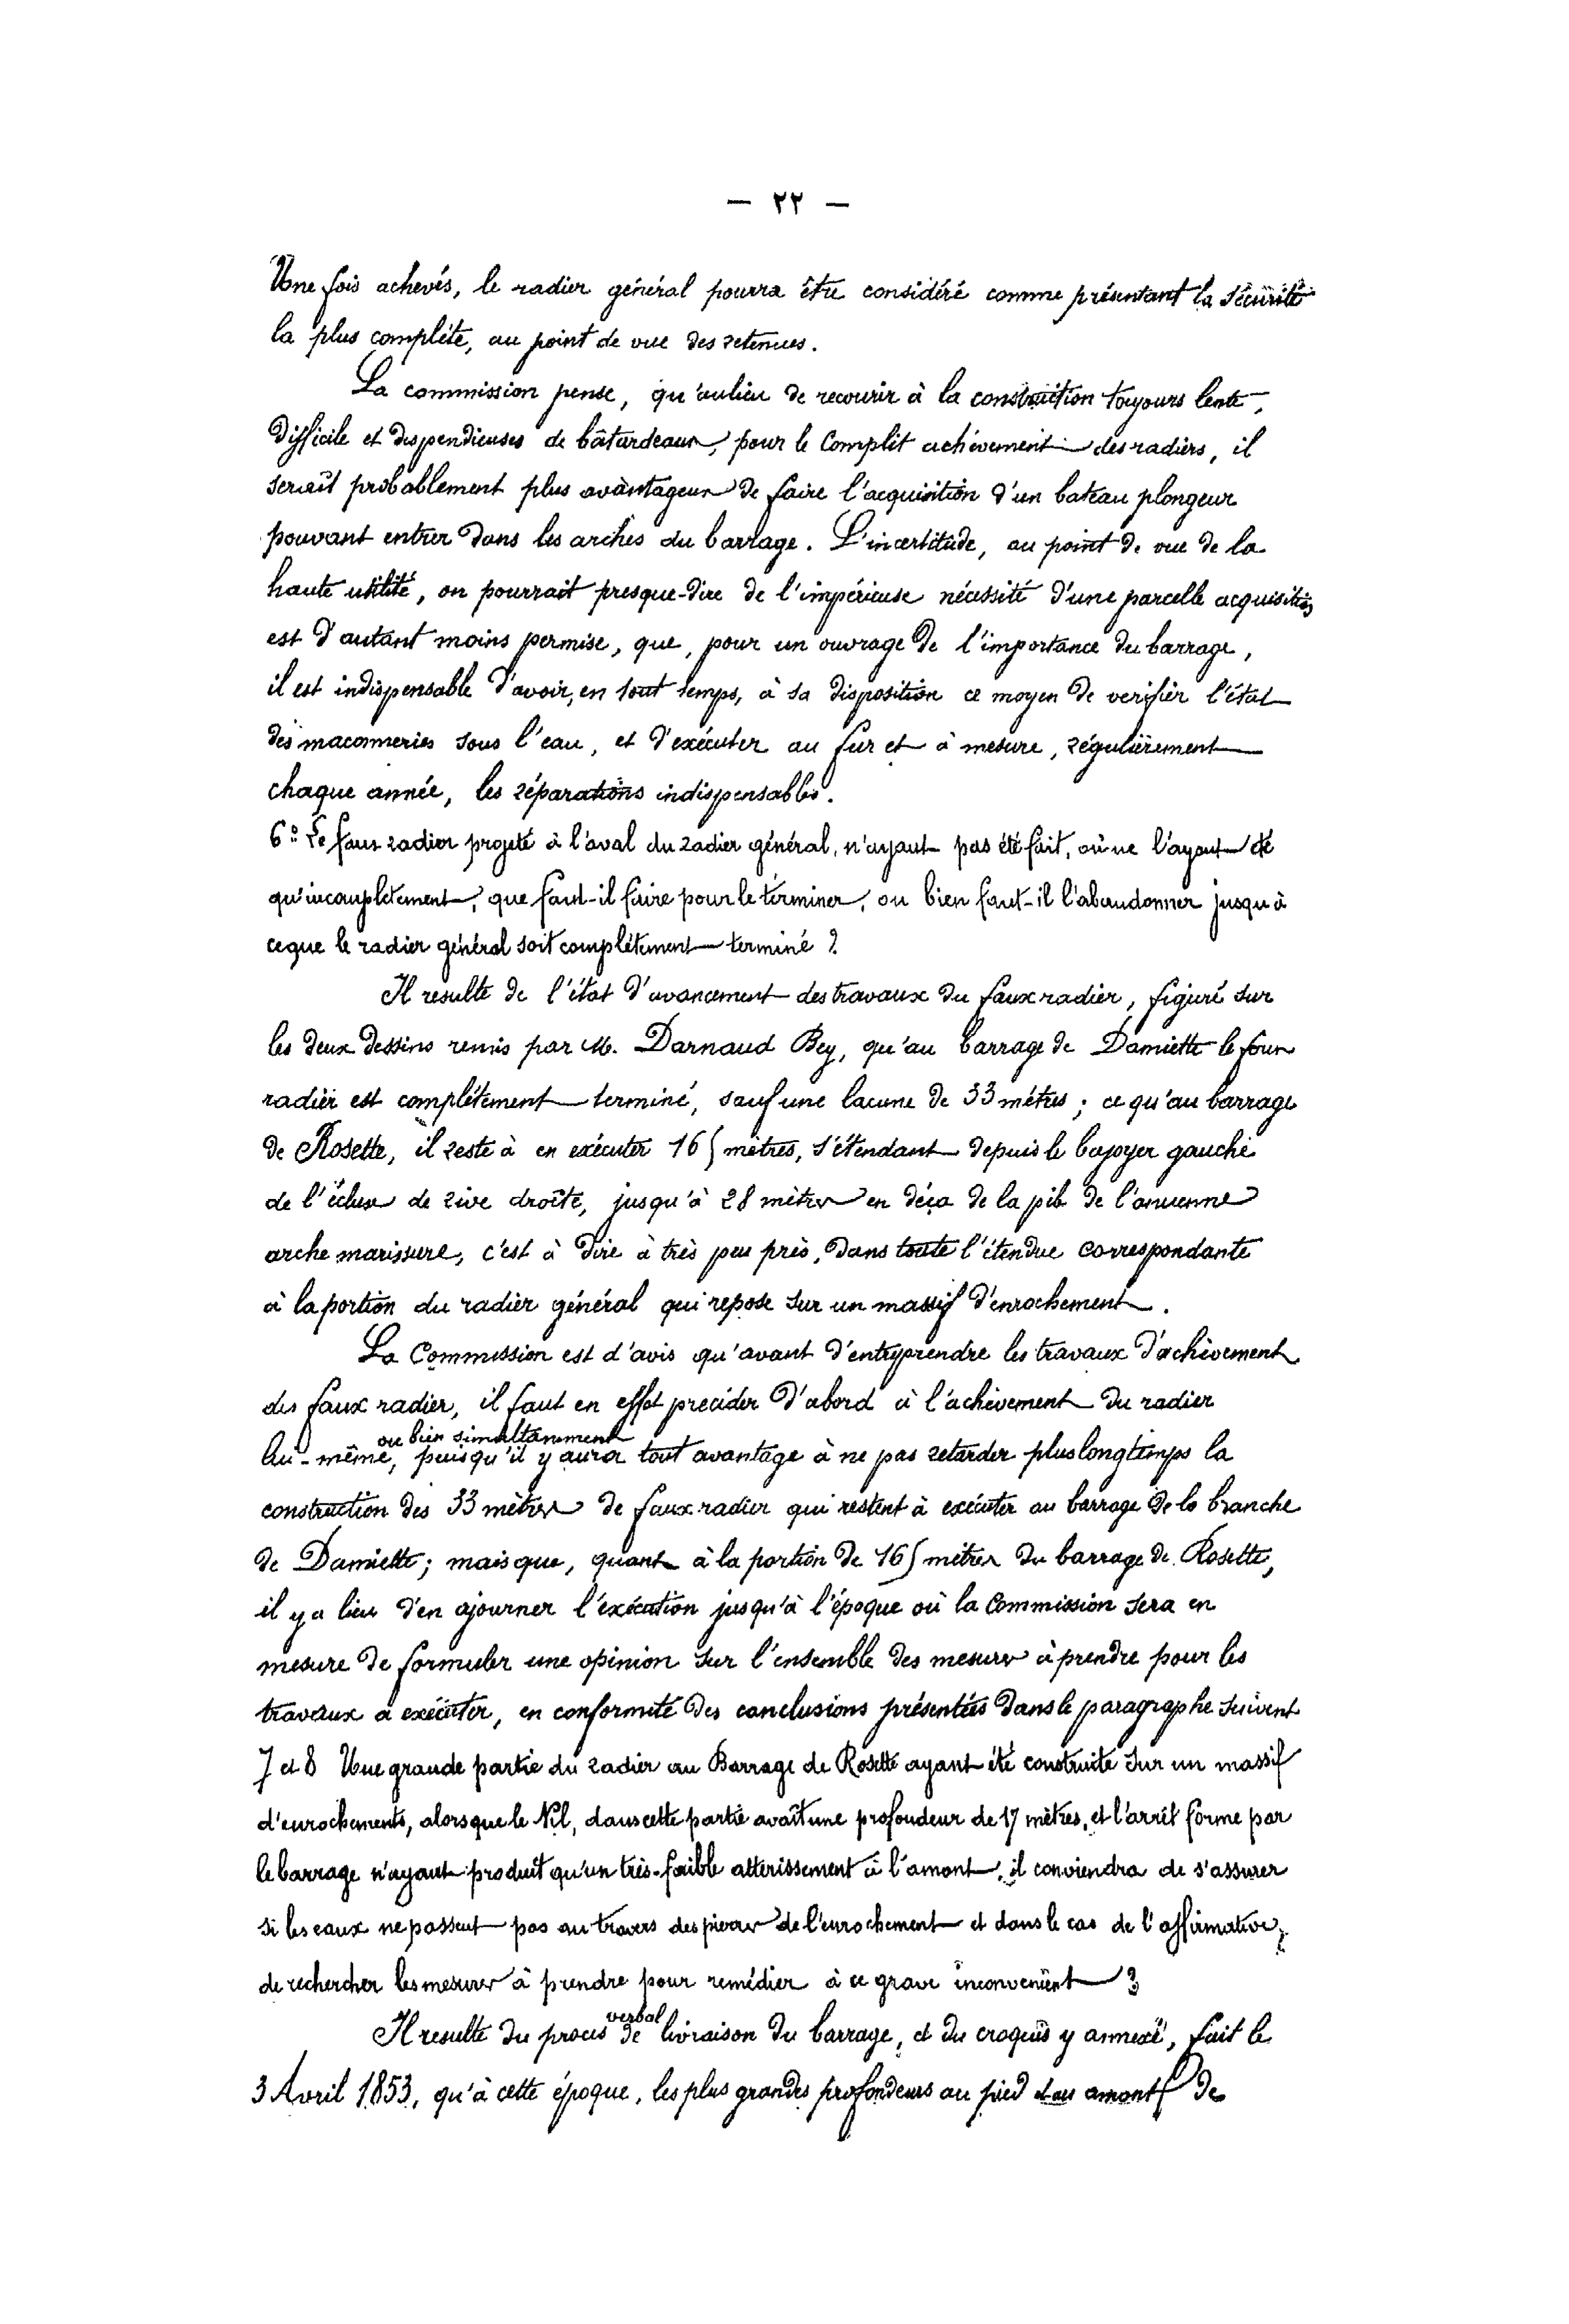 — ٢٢ —
Une fois achevés, le radier général pourra être considéré comme présentant la sécurité
la plus complète, au point de vue des retenues.
La commission pense, qu'aulieu de recourir à la construction toujours lente,
difficile et dispendieuses de bâtardeaux, pour le complèt achèvement des radiers, il
serait probablement plus avantageux de faire l'acquisition d'un bateau plongeur
pouvant entrer dans les arches du barrage. L'incertitude, au point de vue de la
haute utilité, on pourrait presque-dire de l'impérieuse nécessité d'une parcelle acquisition
est d'autant moins permise, que, pour un ouvrage de l'importance du barrage,
il est indispensable d'avoir, en tout temps, à sa disposition ce moyen de verifier l'état
des maconneries sous l'eau, et d'exécuter au fur et à mesure, régulièrement
chaque année, les réparations indispensables.
6° Le faux radier projeté à l'aval du radier général, n'ayant pas été fait, où ne l'ayant été
qu'incomplètement, que faut-il faire pour le terminer, ou bien faut-il l'abandonner jusqu'à
ceque le radier général soit complètement terminé ?
Il resulte de l'état d'avancement des travaux du faux radier, figuré sur
les deux dessins remis par M. Darnaud Bey, qu'au barrage de Damiette le faux
radier est complétement terminé, sauf une lacune de 33 mètres ; ce qu'au barrage
de Rosette, il reste à en exécuter 165 mètres, s'étendant depuis le bajoyer gauche
de l'écluse de rive droite, jusqu'à 28 mètres en déça de la pile de l'ancienne
arche marissure, c'est à dire à très peu près, dans toute l'étendue correspondante
à la portion du radier général qui repose sur un massif d'enrochement.
La Commission est d'avis qu'avant d'entreprendre les travaux d'achèvement
des faux radier, il faut en effet precider d'abord à l'achèvement du radier
ou bien simultanement
lui-même, puisqu'il y aura tout avantage à ne pas retarder plus longtemps la
construction des 33 mètres de faux radier qui restent à exécuter au barrage de la branche
de Damiette; mais que, quant à la portion de 165 mètres du barrage de Rosette,
il y a lieu d'en ajourner l'exécution jusqu'à l'époque où la Commission sera en
mesure de formuler une opinion sur l'ensemble des mesures à prendre pour les
travaux a exécuter, en conformité des conclusions présentées dans le paragraphe suivent
7 et 8 Une grande partie du radier au Barrage de Rosette ayant été construite sur un massif
d'enrochements, alorsque le Nil, dans cette partie avait une profondeur de 17 mètres, et l'arrêt forme par
le barrage n'ayant produit qu'un très-faible atterissement à l'amont, il conviendra de s'assurer
si les eaux ne passent pas au travers des pierres de l'enrochement et dans le cas de l'affirmative,
de rechercher les mesures à prendre pour remédier à ce grave inconvenient ?
verbal
Il resulte du procès de livraison du barrage, et du croquis y annexé, fait le
3 Avril 1853, qu'à cette époque, les plus grandes profondeurs au pied amont de